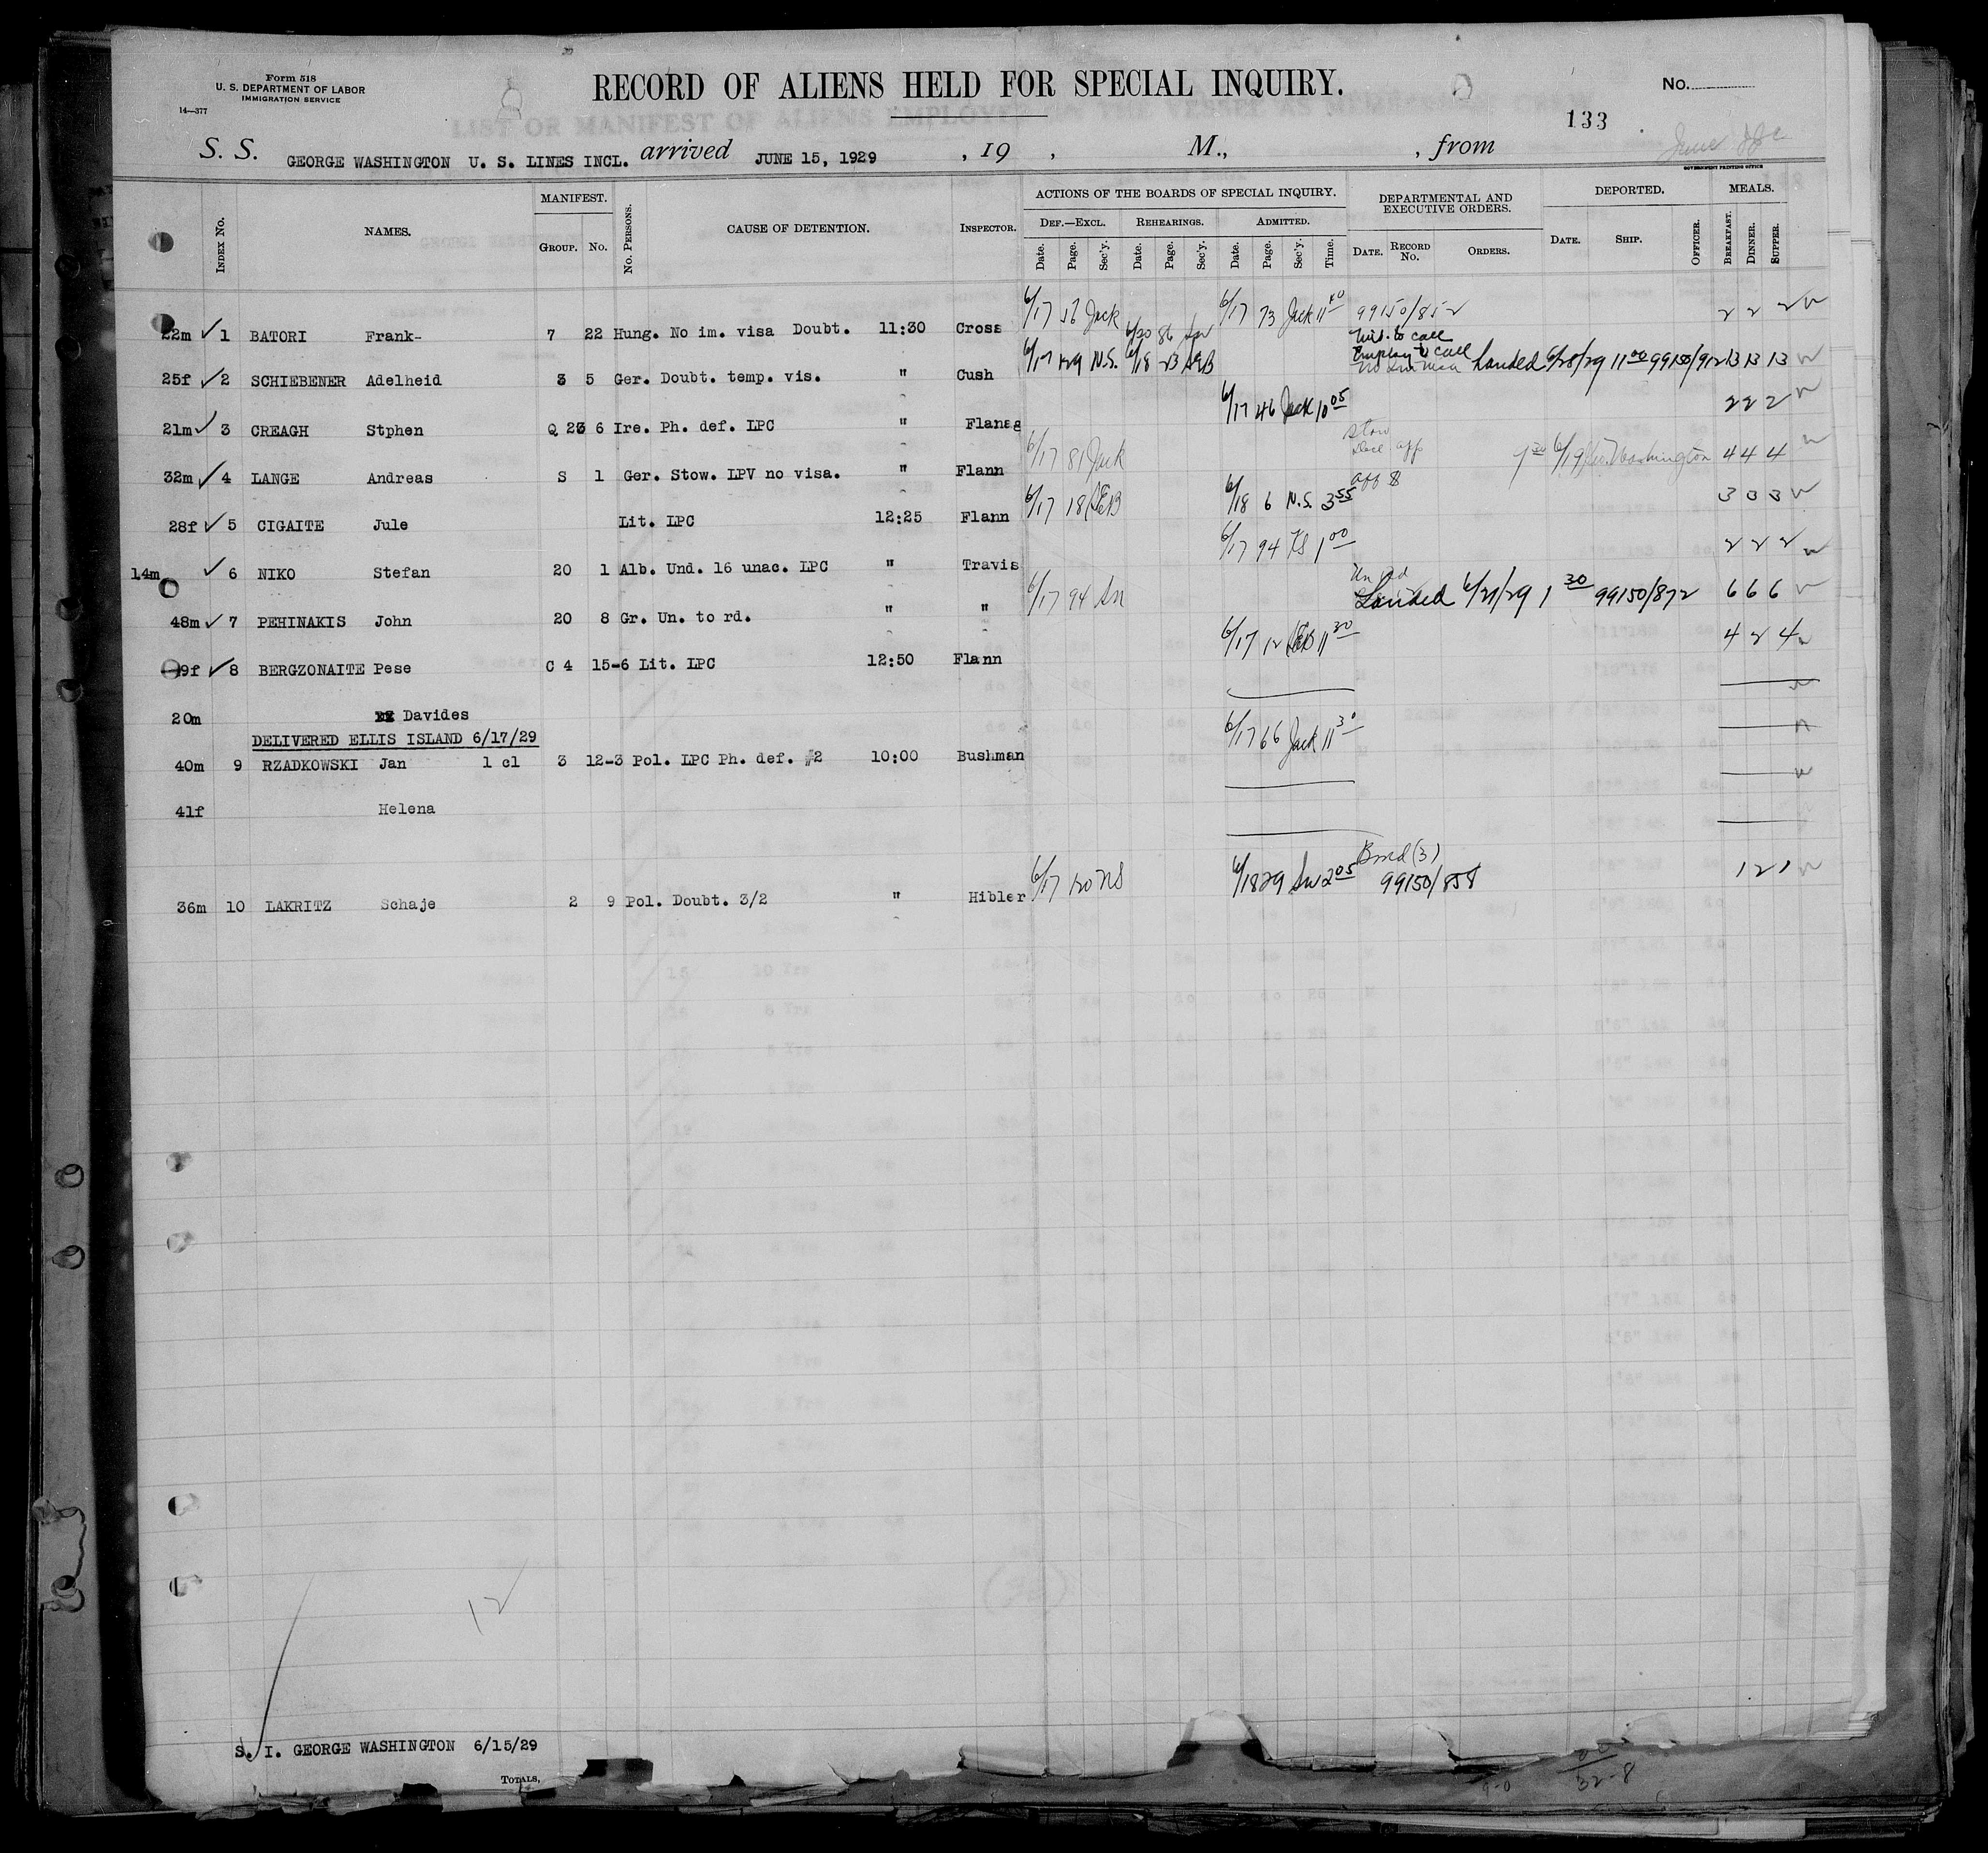 Form 518
U. S. DEPARTMENT OF LABOR
IMMIGRATION SERVICE
14—377
RECORD OF ALIENS HELD FOR SPECIAL INQUIRY.
No.
133
S. S. GEORGE WASHINGTON U. S. LINES INCL. arrived JUNE 15, 1929 , 19 , M., , from
June
GOVERNMENT PRINTING OFFICE
INDEX No. NAMES. MANIFEST. GROUP. No. No. PERSONS. CAUSE OF DETENTION. INSPECTOR. ACTIONS OF THE BOARDS OF SPECIAL INQUIRY. DEF.—EXCL. REHEARINGS. ADMITTED. Date. Page. Sec'y. Date. Page. Sec'y. Date. Page. Sec'y. Time. DEPARTMENTAL AND EXECUTIVE ORDERS. DATE. RECORD No. ORDERS. DEPORTED. DATE. SHIP. OFFICER. MEALS. BREAKFAST. DINNER. SUPPER.
22m ✓ 1 BATORI Frank- 7 22 Hung. No im. visa Doubt. 11:30 Cross 6/17 56 Jack 6/17 73 Jack 11 40 99150/852 2 2 2
25f ✓ 2 SCHIEBENER Adelheid 3 5 Ger. Doubt. temp. vis. " Cush 6/17 129 N.S. 6/18 23 SEB 6/20 86 to call to call Landed 6/28/29 11 00 99150/912 13 13 13
21m ✓ 3 CREAGH Stphen Q 23 6 Ire. Ph. def. LPC " Flanag 6/17 46 Jack 10 05 2 2 2
32m ✓ 4 LANGE Andreas S 1 Ger. Stow. LPV no visa. " Flann 6/17 81 Jack Stow app 6/19 Geo. Washington 4 4 4
28f ✓ 5 CIGAITE Jule Lit. LPC 12:25 Flann 6/17 18 SEB 6/18 6 N.S. 3 55 3 3 3
14m ✓ 6 NIKO Stefan 20 1 Alb. Und. 16 unac. LPC " Travis 6/17 94 1 00 2 2 2
48m ✓ 7 PEHINAKIS John 20 8 Gr. Un. to rd. " " 6/17 94 Landed 6/21/29 1 30 99150/872 6 6 6
9f ✓ 8 BERGZONAITE Pese C 4 15-6 Lit. LPC 12:50 Flann 6/17 12 SEB 11 30 4 2 4
20m Davides
DELIVERED ELLIS ISLAND 6/17/29
40m 9 RZADKOWSKI Jan 1 cl 3 12-3 Pol. LPC Ph. def. #2 10:00 Bushman 6/17 66 Jack 11 30
41f Helena
36m 10 LAKRITZ Schaje 2 9 Pol. Doubt. 3/2 " Hibler 6/17 120 NS 6/18 29 2 05 Bond (3) 99150/858 1 2 1
12
S. I. GEORGE WASHINGTON 6/15/29
TOTALS,
32-8